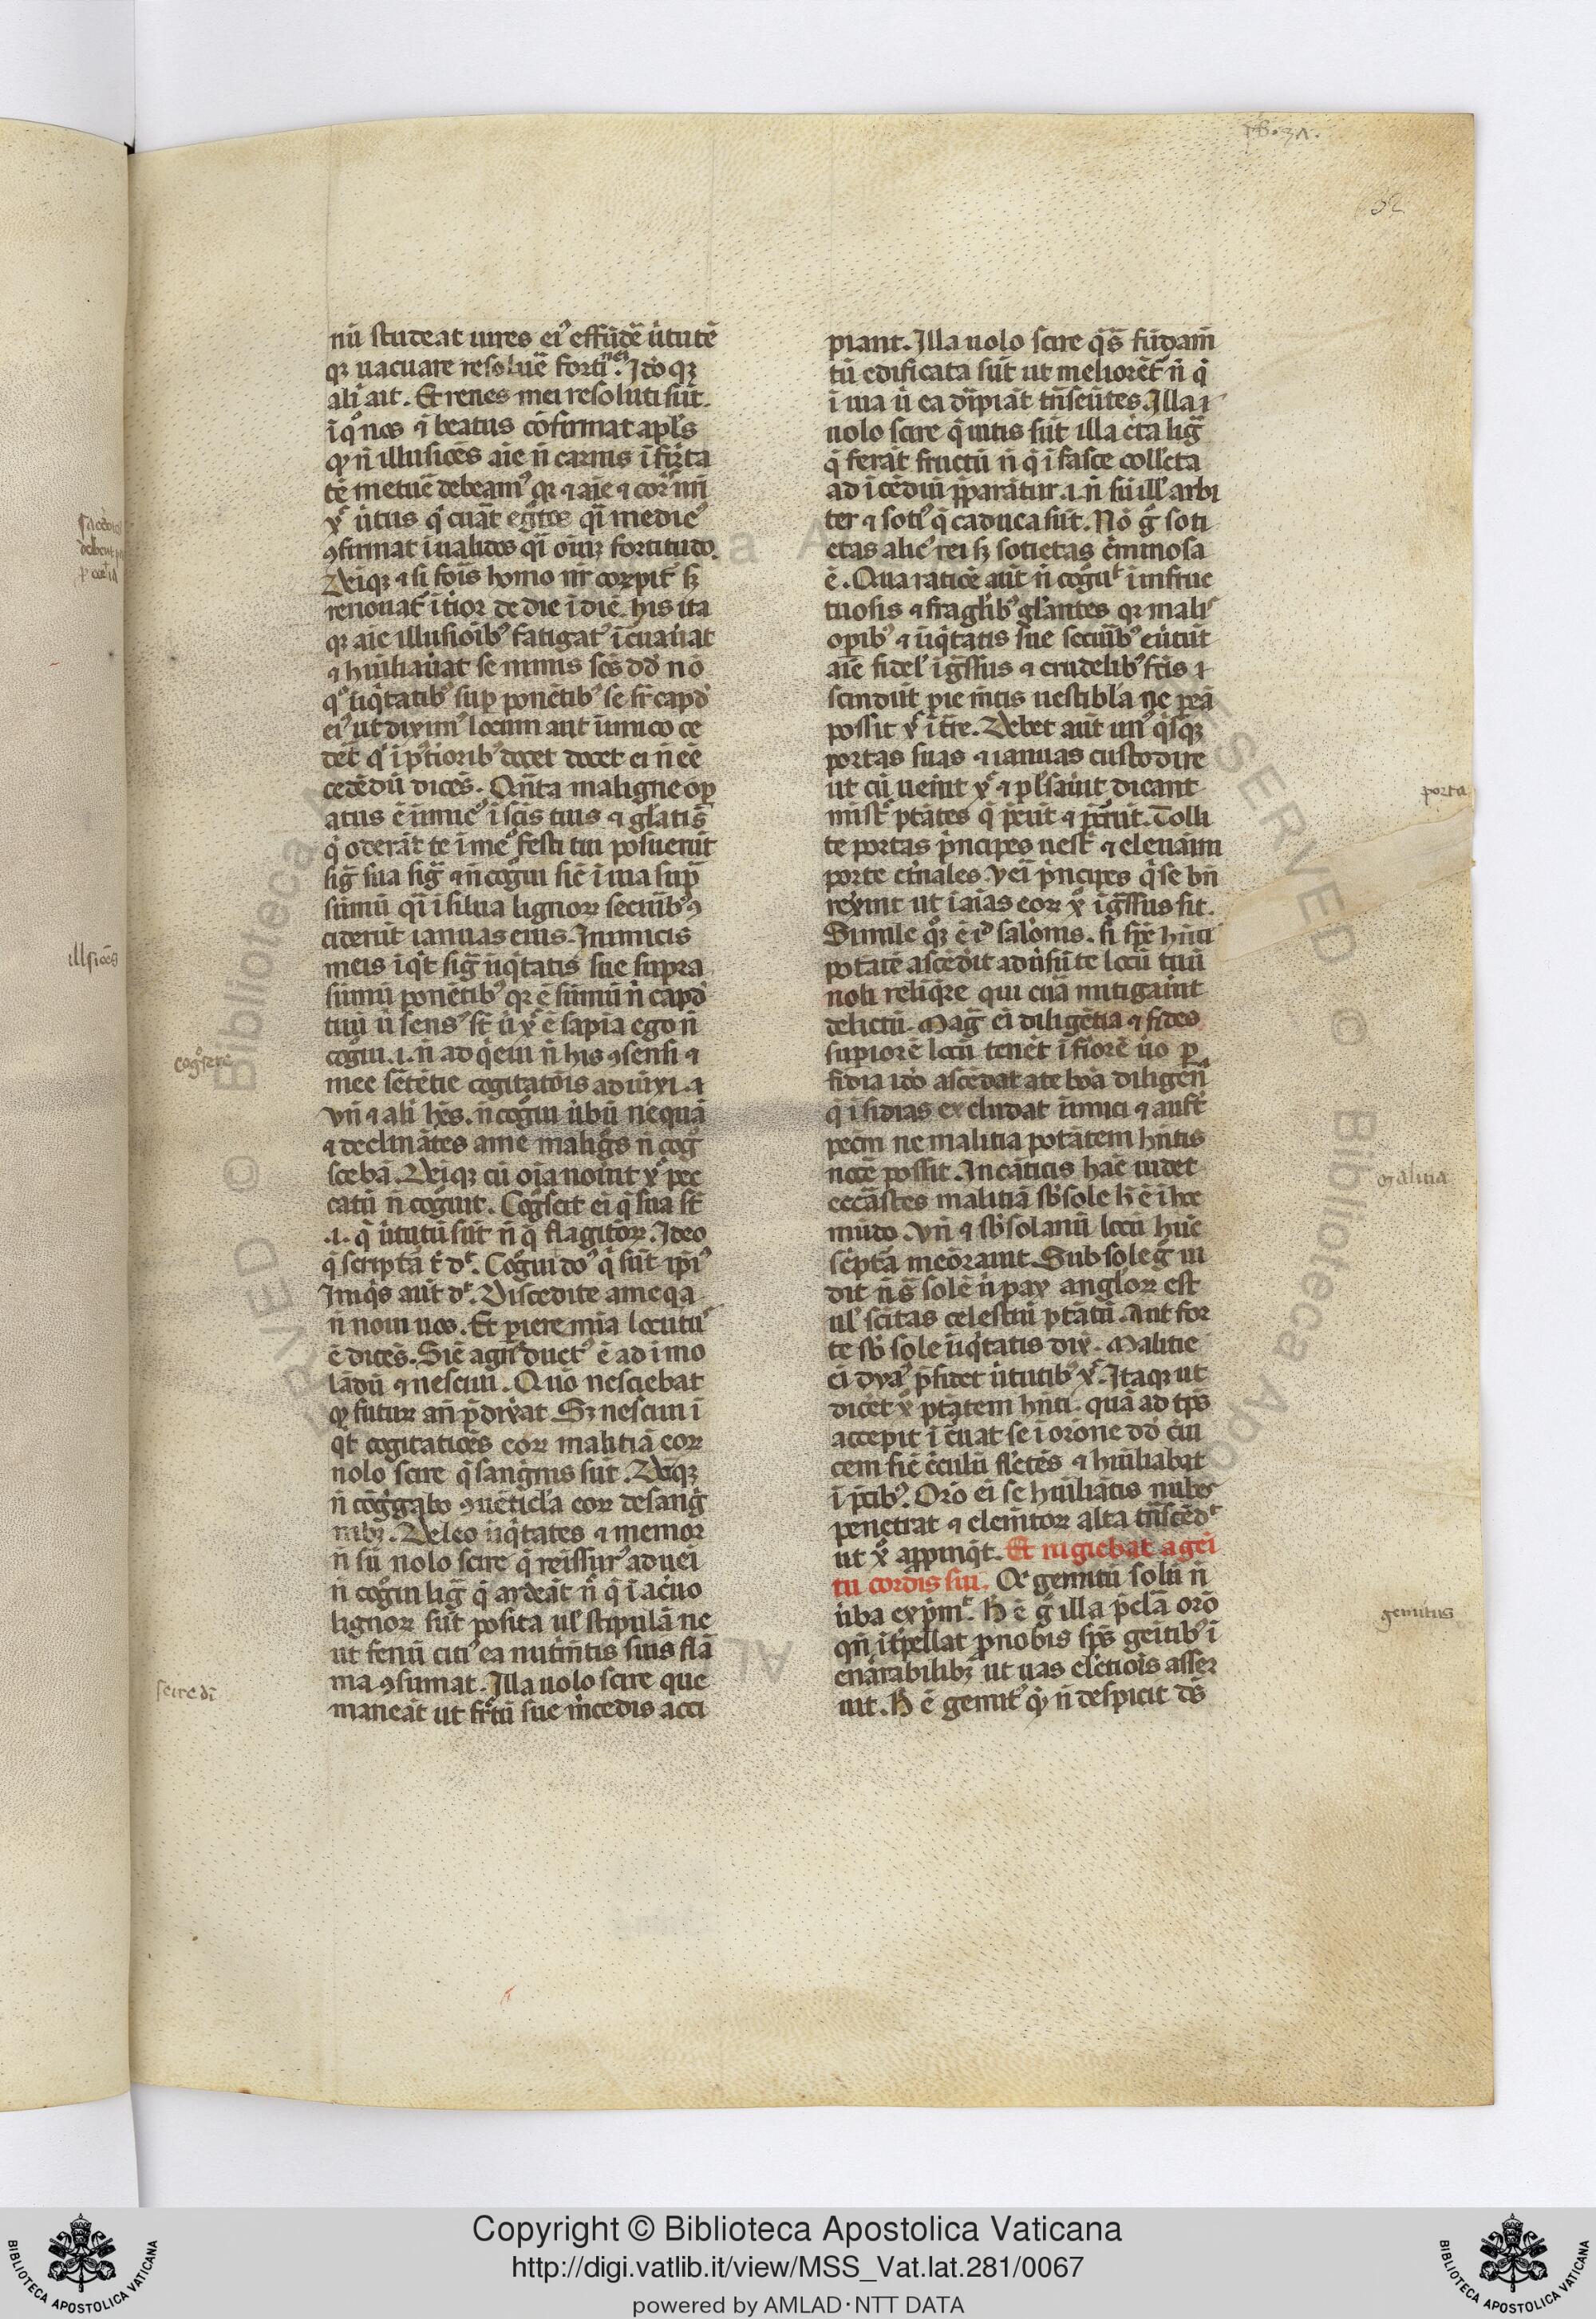 .32.
nū studeat uires ei᾿ effūdē ùtutē
qꝫ uacuare resoluē forti nei. Jdo qꝫ
ali ait. Et renes mei resoluti sūt.
ī qͦ nos ⁊ beatus cōfirmat apl̄s
qꝫ n̄ illusiōēs aīe n̄ carnis īfirīta
tē metuē debeam᾿ qꝫ ⁊ aīe ⁊ cor nr̄i
xͬ ùtus q̇ cuāt egͦtos qī medic᾿
ꝯfirmat īualidos qī oīuꝫ fortitudo.
Deīqꝫ ⁊ si foīs homo nr̄ corrpit᾿ sꝫ
renouat᾿ ītior de die ī diē. his ita
qꝫ aīe illusioīb᾿ fatigat᾿ īcuauat
⁊ hūiliauat se nimis scs̄ dd̄ nō
qͦ īiqͥtatib᾿ suꝑ ponētib᾿ se sr̄ capd᾿
ei᾿ ut dixim᾿ locum aut īimico ce
dēt qͥ ī pͥorib᾿ docet docet ei n̄ eē
cedēdū dicēs. Qn̄ta maligne oꝑ
atus ē īimic᾿ ī scīs tuis ⁊ gl̄atis̄
q̇ oderāt te ī meͦ festi tui posuerūt
sig̅ sua sig̅ ⁊ n̄ cogͦui sic̄ ī uia supͣ
sūmū qī ī silua lignoꝝ secuīb᾿ ꝯ
ciderūt ianuas eius. Jnimicis
meis īqͥt sig̅ īiqͥtatis sue supra
sūmū ponētib᾿ qꝫ ē sūmū n̄ capd᾿
tuū ù sens᾿ st̄ ù xͬ ē sapīa ego n̄
cogͦui .i. n̄ ad qͥeui n̄ his ꝯsensi ⁊
mee sētētie cogitatōis ad iūxi. ⁊
vn̄ ⁊ ali hēs. n̄ cogͦui ùbū nequā
⁊ declinātes a me maligͦs n̄ cogͦ
scebā. Deīqꝫ cū oīa nouit xͬ pec
catū n̄ cogͦuit. Cogͦscit ei q̇ sua st̄
.i. q̇ ùtutū sūt n̄ q̇ flagitioꝝ. Jdeo
q̇ scripta ē dͬ. Cogͦui do᾿ q̇ sūt ip̄i᾿
Jniqͥs aūt dͬ. Discedite a me qa
n̄ noui uos. Et ꝑ ieremia locutu᾿
ē dicēs. Sic̄ agn᾿ duct᾿ ē ad imo
lādū ⁊ nesciui. Quō nesciebat
qꝫ futuꝝ an̄ pͥdixāt. Sꝫ nesciui ī
qͥt cogitatiōēs eoꝝ malitiā eoꝝ
nolo scire q̇ sangͥnis sūt. Deīqꝫ
n̄ cōgͥgabo ꝯuēticl̄a eoꝝ de sangͥ
nibꝫ. Deleo īiqͥtates ⁊ memor
n̄ sū nolo scire q̇ reissur᾿ aduei
n̄ cogͦui lig̅ q̇ ardeāt n̄ q̇ ī acuo
lignoꝝ sūt posita ul᾿ stipulā ne
ut fenū citi᾿ ea nutimtis suis flā
ma ꝯsumat. Jlla uolo scire que
maneāt ut fr̄tū sue mͥcedis acci
piant. Jlla uolo scire qͥs̄ fūdam̄
tū edificata sūt ut meliorēt᾿ n̄ q̇
ī uia ù ea dīpiāt tn̄seūtes. Jlla ⁊
uolo scire q̇ uitis sūt illa ēta lig̅
q̇ ferāt fructū n̄ q̇ ī fasce collc̄ta
ad īcēdiū p̄parātur .i. n̄ sū ill᾿ arbi
ter ⁊ soti᾿ q̇ caduca sūt. Nō gͦ soti
etas alic᾿ rei sꝫ sotietas c̄minosa
ē. Qua ratiōe aūt n̄ cogͦuͭ ī infruc
tuosis ⁊ fragl̄ib᾿ gl̄antes qꝫ mali᾿
oꝑib᾿ ⁊ īiqͥtatis sue secuīb᾿ eūtūt
aīe fidel᾿ īgͥssus ⁊ crudelib᾿ fc̄is ⁊
scindūt pie mͥtis uestibl᾿a ne ꝑeā
possit xͬ ītͥre. Debet aūt un᾿ qͥsqꝫ
portas suas ⁊ ianuas custodire
ut cū uēint xͬ ⁊ pl᾿saūit dicant
nīstͥ ptātes q̇ pͥeūt ⁊ pͥcrūt. Tolli
te portas pͥncipes uestͥ ⁊ eleuāīni
porte etͥnales. vei pͥncipes q̇ se bn̄
rexint ut ī aias eoꝝ xͬ īgͥssus sit.
Simile qͦꝫ ē ī salōmis. si sp̄c hn̄ti
potātē ascēdit adùsū te locū tuū
noli relīqͥre qui cuā mitigauit
delictū. Mag̅ ei diligētia ⁊ fides
supiorē locū tenēt īfiorē ùo ꝑ
fidia ido ascēdat a te boa diligen̄
q̇ īsidias excludat īimici ⁊ aufr̄
pecīn ne malitia potātem hn̄tis
nocē possit. Jn cāticis hac̄ uidet
eccāstes malitiā sb̄ sole h̄ ē ī hoc
mūdo. vn̄ ⁊ sb̄ solanū locū hūc
sēpta meōrauit. Sub sole gͦ ui
dit n̄ s̄ solē ù pax anglōꝝ est
ul᾿ scītas celestiū ptātū. Aut for
te sb̄ sole īiqͥtatis dix̄. Malitie
ei dya᾿ p̄sidet ùtutib᾿ xͬ. Jtaqꝫ ut
dicēt xͬ ptātem hn̄ti. quā ad tp̄s
accepit īcuat se ī orōne dd̄ ciu
cem sic̄ c̄culū flētēs ⁊ hūiliabat
ī pͥcib᾿. Orō ei se hūiliātis nubes
penetrat ⁊ elemͥtoꝝ alta tn̄scēdͭ
ut xͦ appīnqͥt. Et rugiebat a gēi
tu cordis sui. Oc gemitū solū n̄
ùba expͥmͭ. h̄ ē gͦ illa pͥcla orō
qn̄ īt̄pellat ꝓ nobis sp̄s geītib᾿ ī
enārabilibꝫ ut uas elctiois asser
uit. h̄ ē gemit᾿ qꝫ n̄ despicit ds̄
porta
illusiōēs
cogͦscere
malitia
gemitus
scire dī
Copyright © Biblioteca Apostolica Vaticana
http://digi.vatlib.it/view/MSS_Vat.lat.281/0067
powered by AMLAD·NTT DATA
BIBLIOTECA APOSTOLICA VATICANA
BIBLIOTECA APOSTOLICA VATICANA